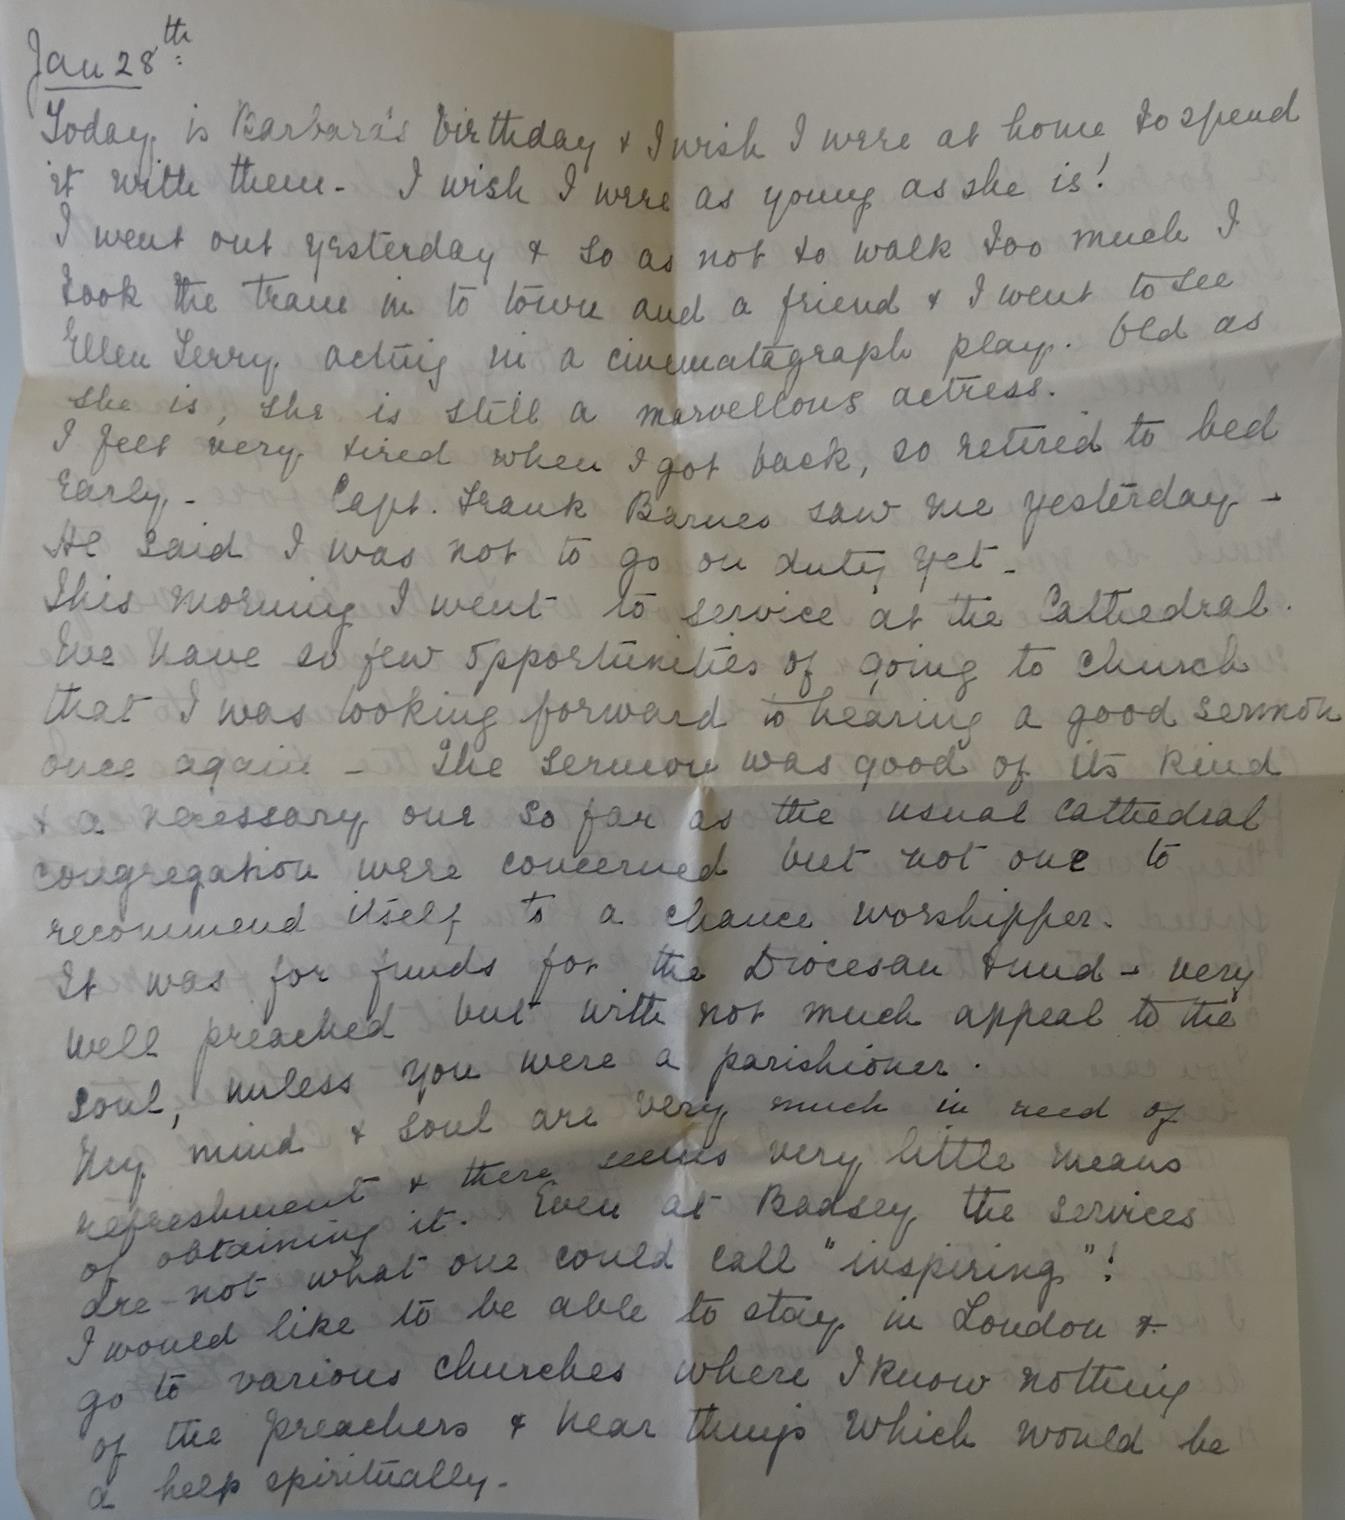 Jan 28th
Today is Barbara's birthday & I wish I were at home to spend
it with them - I wish I were as young as she is!
I went out yesterday & so as not to walk too much I
took the tram in to town and a friend & I went to see
Ellen Terry acting in a cinematograph play. Old as
she is, she is still a marvellous actress.
I felt very tired when I got back, so retired to bed
early - Capt. Frank Barnes saw me yesterday -
He said I was not to go on duty yet -
This morning I went to service at the Cathedral.
We have so few opportunities of going to church
that I was looking forward to hearing a good sermon
once again - The sermon was good of its kind
& a necessary one so far as the usual Cathedral
congregation were concerned but not one to
recommend itself to a chance worshipper.
It was for funds for the Diocesan Fund - very
well preached but with not much appeal to the
soul, unless you were a parishioner.
My mind & soul are very much in need of
refreshment & there seems very little means
of obtaining it. Even at Badsey the services
are not what one could call "inspiring"!
I would like to be able to stay in London &
go to various churches where I know nothing
of the preachers & hear things which would be
a help spiritually -